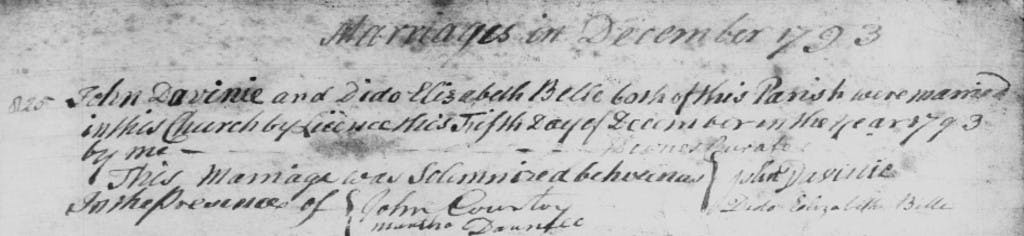 Marriages in December 1793
825 John Davinie and Dido Elizabeth Belle both of this Parish were married
in this Church by Licence this Fifth Day of December in the Year 1793
by me — Curate
This Marriage was Solemnized between us John Davinie
In the Presence of John Courtoy Dido Elizabeth Belle
Martha Dauntee